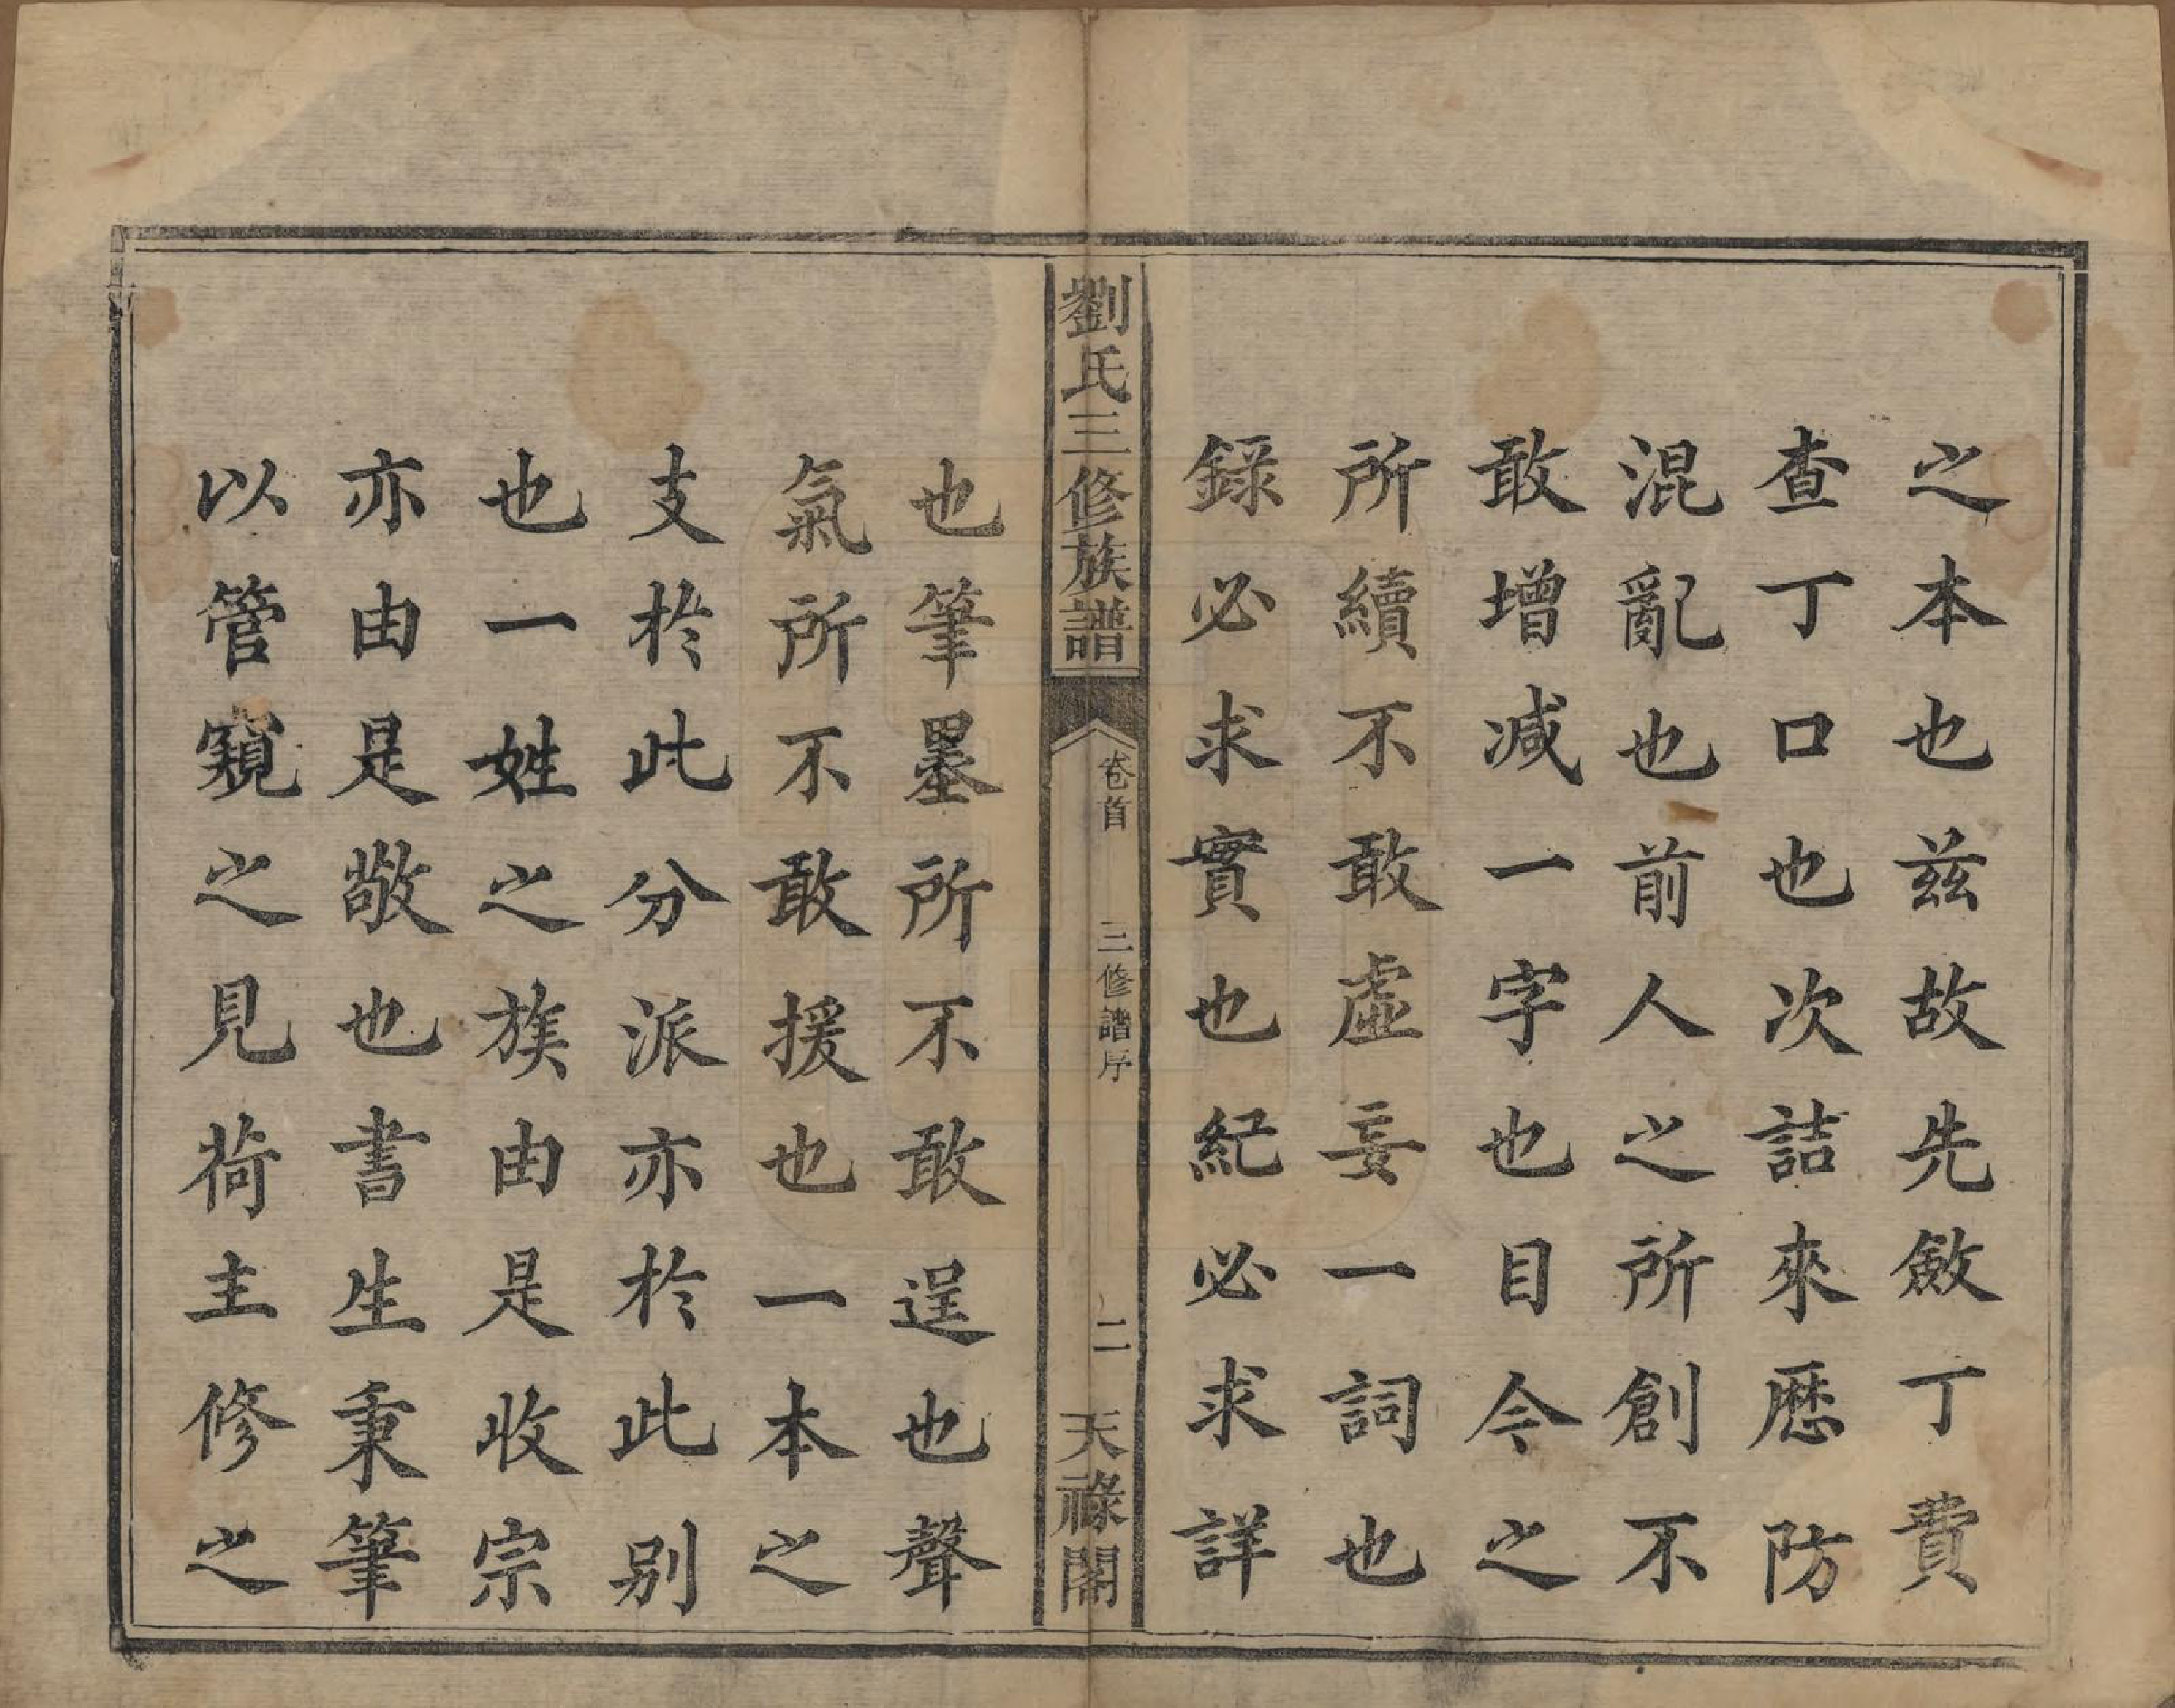 之本也茲故先斂丁費
查丁口也次詰來歷防
混亂也前人之所創不
敢增减一字也目今之
所續不敢虛妄一詞也
錄必求實也紀必求詳
劉氏三修族譜
卷首
三修譜序
二
天祿閣
也筆墨所不敢逞也聲
氣所不敢援也一本之
支於此分派亦於此别
也一姓之族由是收宗
亦由是敬也書生秉筆
以管窺之見荷主修之